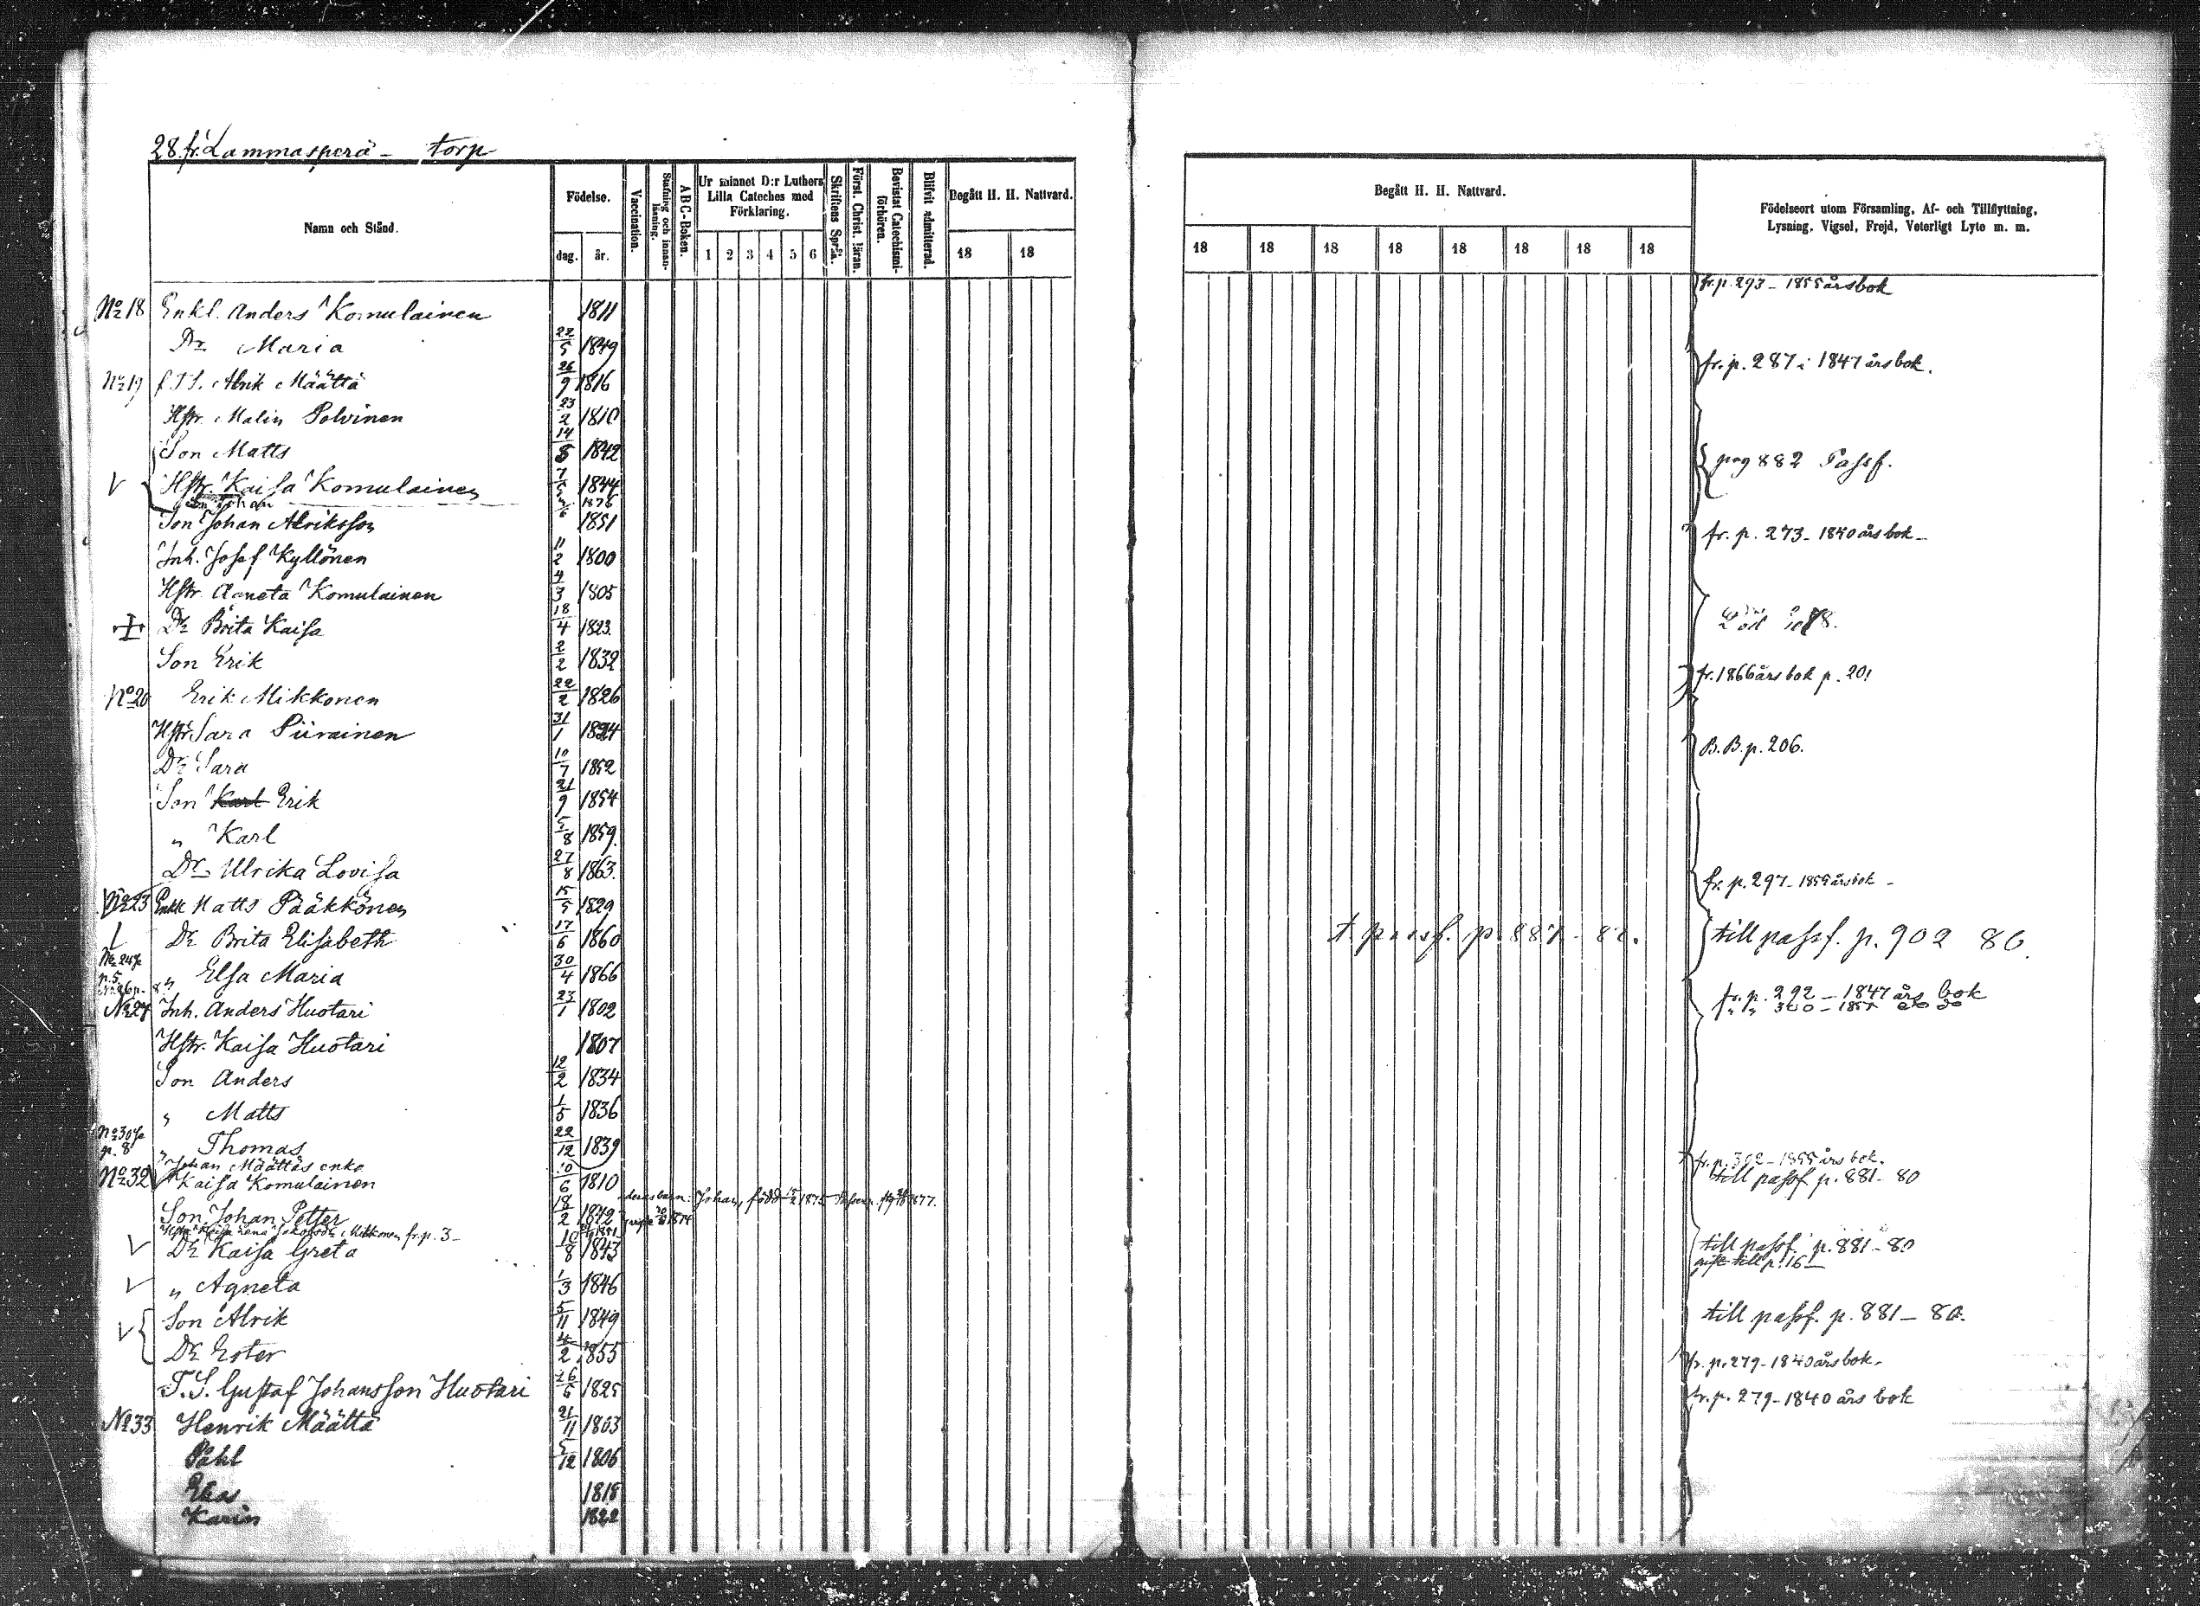 28. fr. Lammasperä - torp
Namn och Stånd.
Födelse.
dag. år.
Vaccination.
Stafning och innanläsning.
ABC-Boken.
Ur minnet D:r Luthers Lilla Cateches med Förklaring.
1 2 3 4 5 6
Skriftens Språk.
Först. Christ. läran.
Bevistat Catechismiförhören.
Blifvit admitterad.
Begått H. H. Nattvard.
18 18
Begått H. H. Nattvard.
18 18 18 18 18 18 18 18
Födelseort utom Församling, Af- och Tillflyttning,
Lysning, Vigsel, Frejd, Veterligt Lyte m. m.
fr. p. 293 - 1855 årsbok
No 18 Enkl. Anders Komulainen 1811
Dr Maria 22/5 1849
No 19 f.T.S. Alrik Määttä 26/9 1816 fr. p. 287 i 1847 årsbok.
Hstr. Malin Polvinen 23/2 1810
Son Matts 14/8 1842
V Hstr. Kaisa Komulainen 7/5 1844 pag 882 Passf.
Son Johan 1876
Son Johan Alriksson 1851 fr. p. 273 - 1840 årsbok -
Inh. Josef Kyllönen 11/2 1800
Hstr. Agneta Komulainen 4/3 1805
Dr Brita Kaisa 18/4 1823. Död
Son Erik 2/2 1832
No 20 Erik Mikkonen 22/2 1826 fr. 1866 års bok p. 201
Hstr Sara Piirainen 31/1 1824
Dr Sara 10/7 1852 B.B. p. 206.
Son Karl Erik 21/9 1854
" Karl 5/8 1859.
Dr Ulrika Lovisa 27/8 1863.
No 23 Enkl Matts Pääkkönen 15/5 1829 fr. p. 297 - 1855 årsbok -
Dr Brita Elisabeth 17/6 1860 t. passf. p. 887 - 82. till passf. p. 902 80.
No 24
p. 5
" Elsa Maria 30/4 1866
No 27 Inh. Anders Huotari 23/1 1802 fr. p. 292 - 1847 års bok
" " 300 - 1855 do do
Hstr. Kaisa Huotari 1807
Son Anders 12/2 1834
" Matts 1/5 1836
No 30
p. 8
" Thomas 22/12 1839
Johan Määttäs enka fr. p. 302 - 1855 års bok.
No 32 Kaisa Komulainen 10/6 1810 till passf p. 881 - 80
deras barn: Johan, född 1875
Son Johan Petter 18/2 1842 1874
Hstr Kaisa Lena Jakobsdr Mikkonen fr. p. 3 -
V Dr Kaisa Greta 10/8 1843 till passf. p. 881 - 80
gift till p. 16 -
V " Agneta 1/3 1846
Son Alrik 5/11 1849 till passf. p. 881 - 80.
V Dr Ester 4/2 1855
T.S. Gustaf Johansson Huotari 26/5 1825 fr. p. 279 - 1840 årsbok.
No 33 Henrik Määttä 21/11 1803 fr. p. 279 - 1840 års bok
Påhl 5/12 1806
Elias 1818
Karin 1822